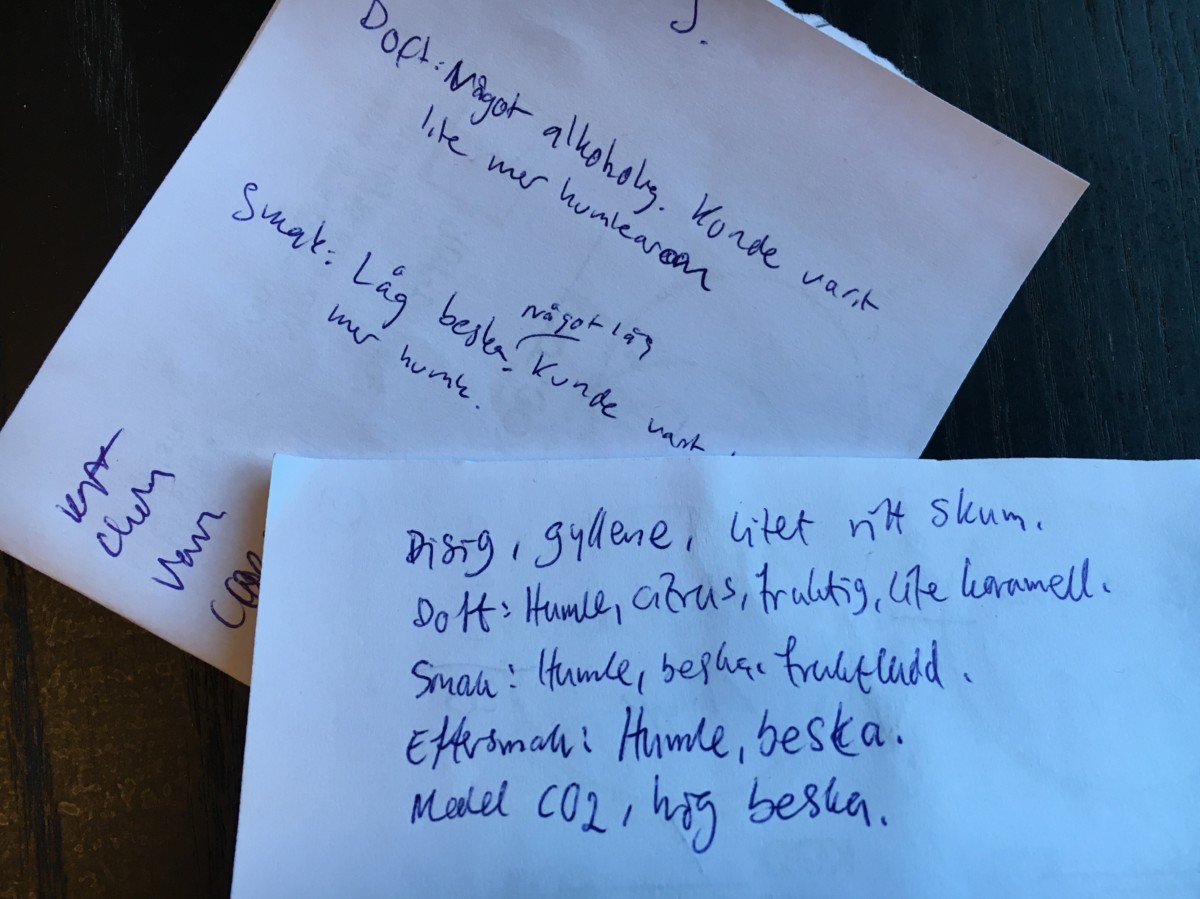 J.
Doft: Något alkoholig. Kunde varit
lite mer humlearom
Smak: Låg beska. Kunde varit
något låg
mer humle.
Disig, gyllene, litet vitt skum.
Doft: Humle, citrus, fruktig, lite karamell.
Smak: Humle, beska. fruktkudd.
Eftersmak: Humle, beska.
Medel CO2, hög beska.